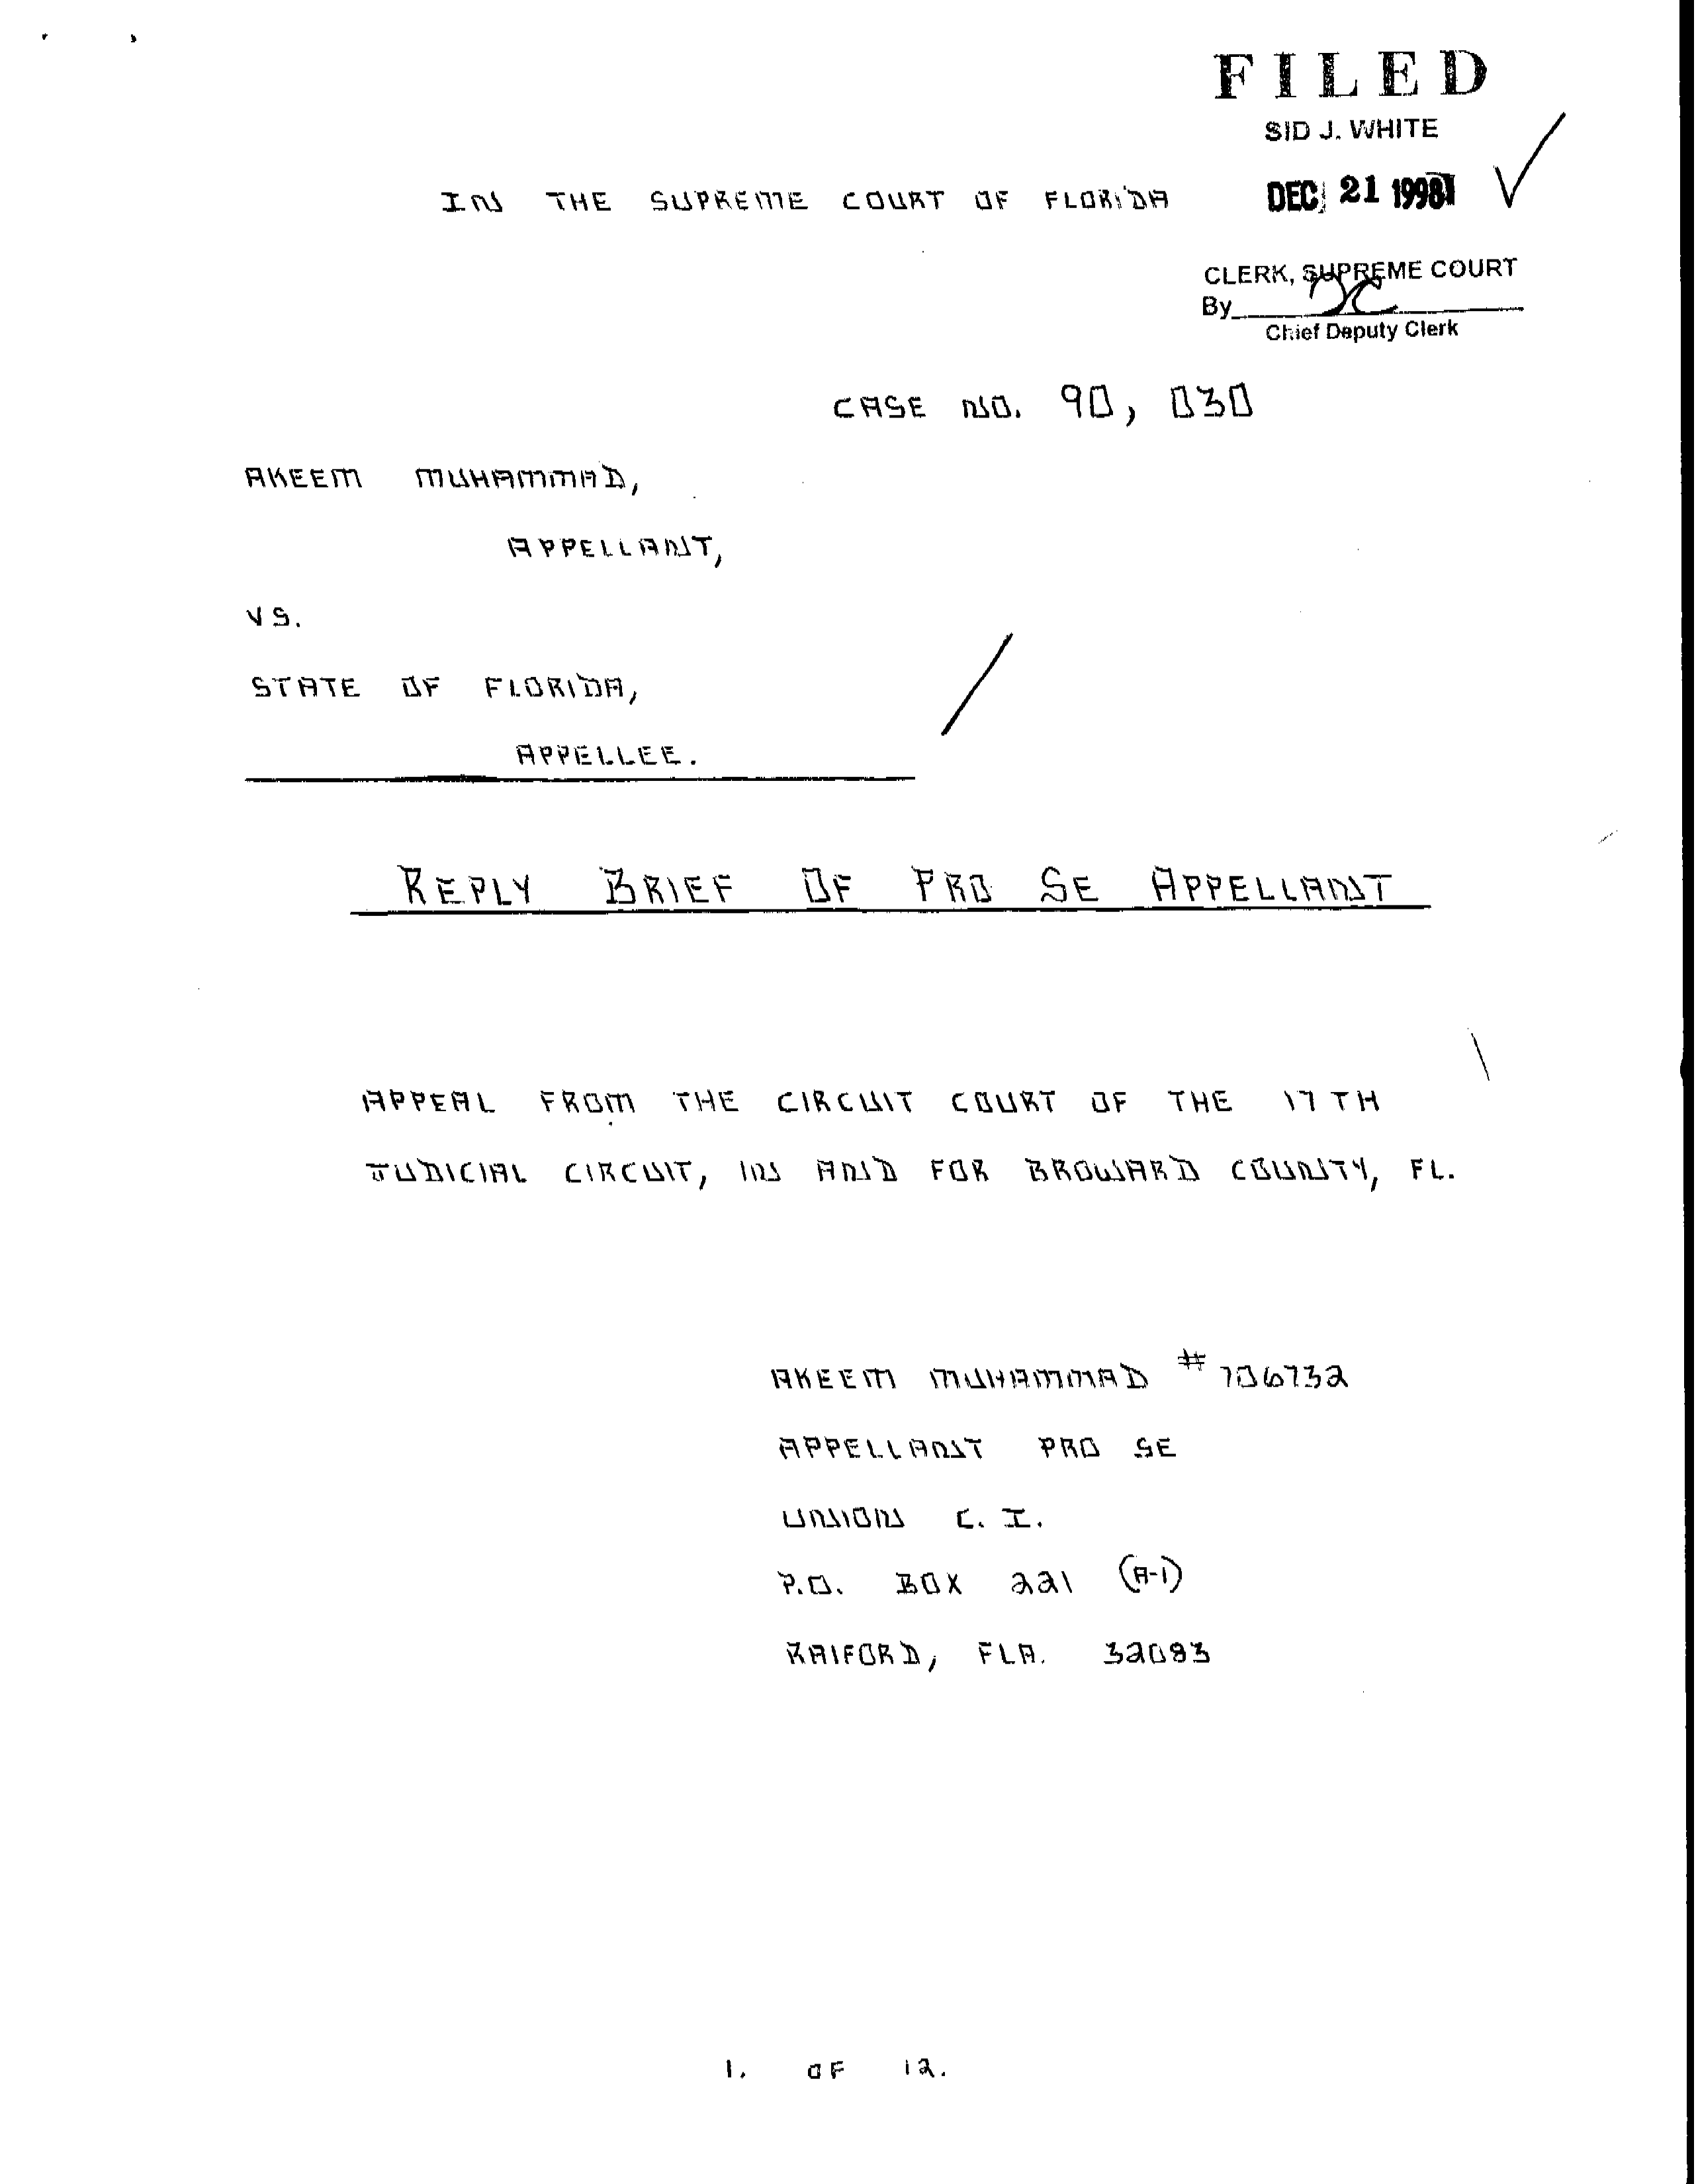 FILED
SID J. WHITE
IN THE SUPREME COURT OF FLORIDA
DEC 21 1998
CLERK, SUPREME COURT
By
Chief Deputy Clerk
CASE NO. 90, 030
AKEEM MUHAMMAD,
APPELLANT,
VS.
STATE OF FLORIDA,
APPELLEE.
REPLY BRIEF OF PRO SE APPELLANT
APPEAL FROM THE CIRCUIT COURT OF THE 17TH
JUDICIAL CIRCUIT, IN AND FOR BROWARD COUNTY, FL.
AKEEM MUHAMMAD # 706732
APPELLANT PRO SE
UNION C. I.
P.O. BOX 221 (A-1)
RAIFORD, FLA. 32083
1. OF 12.